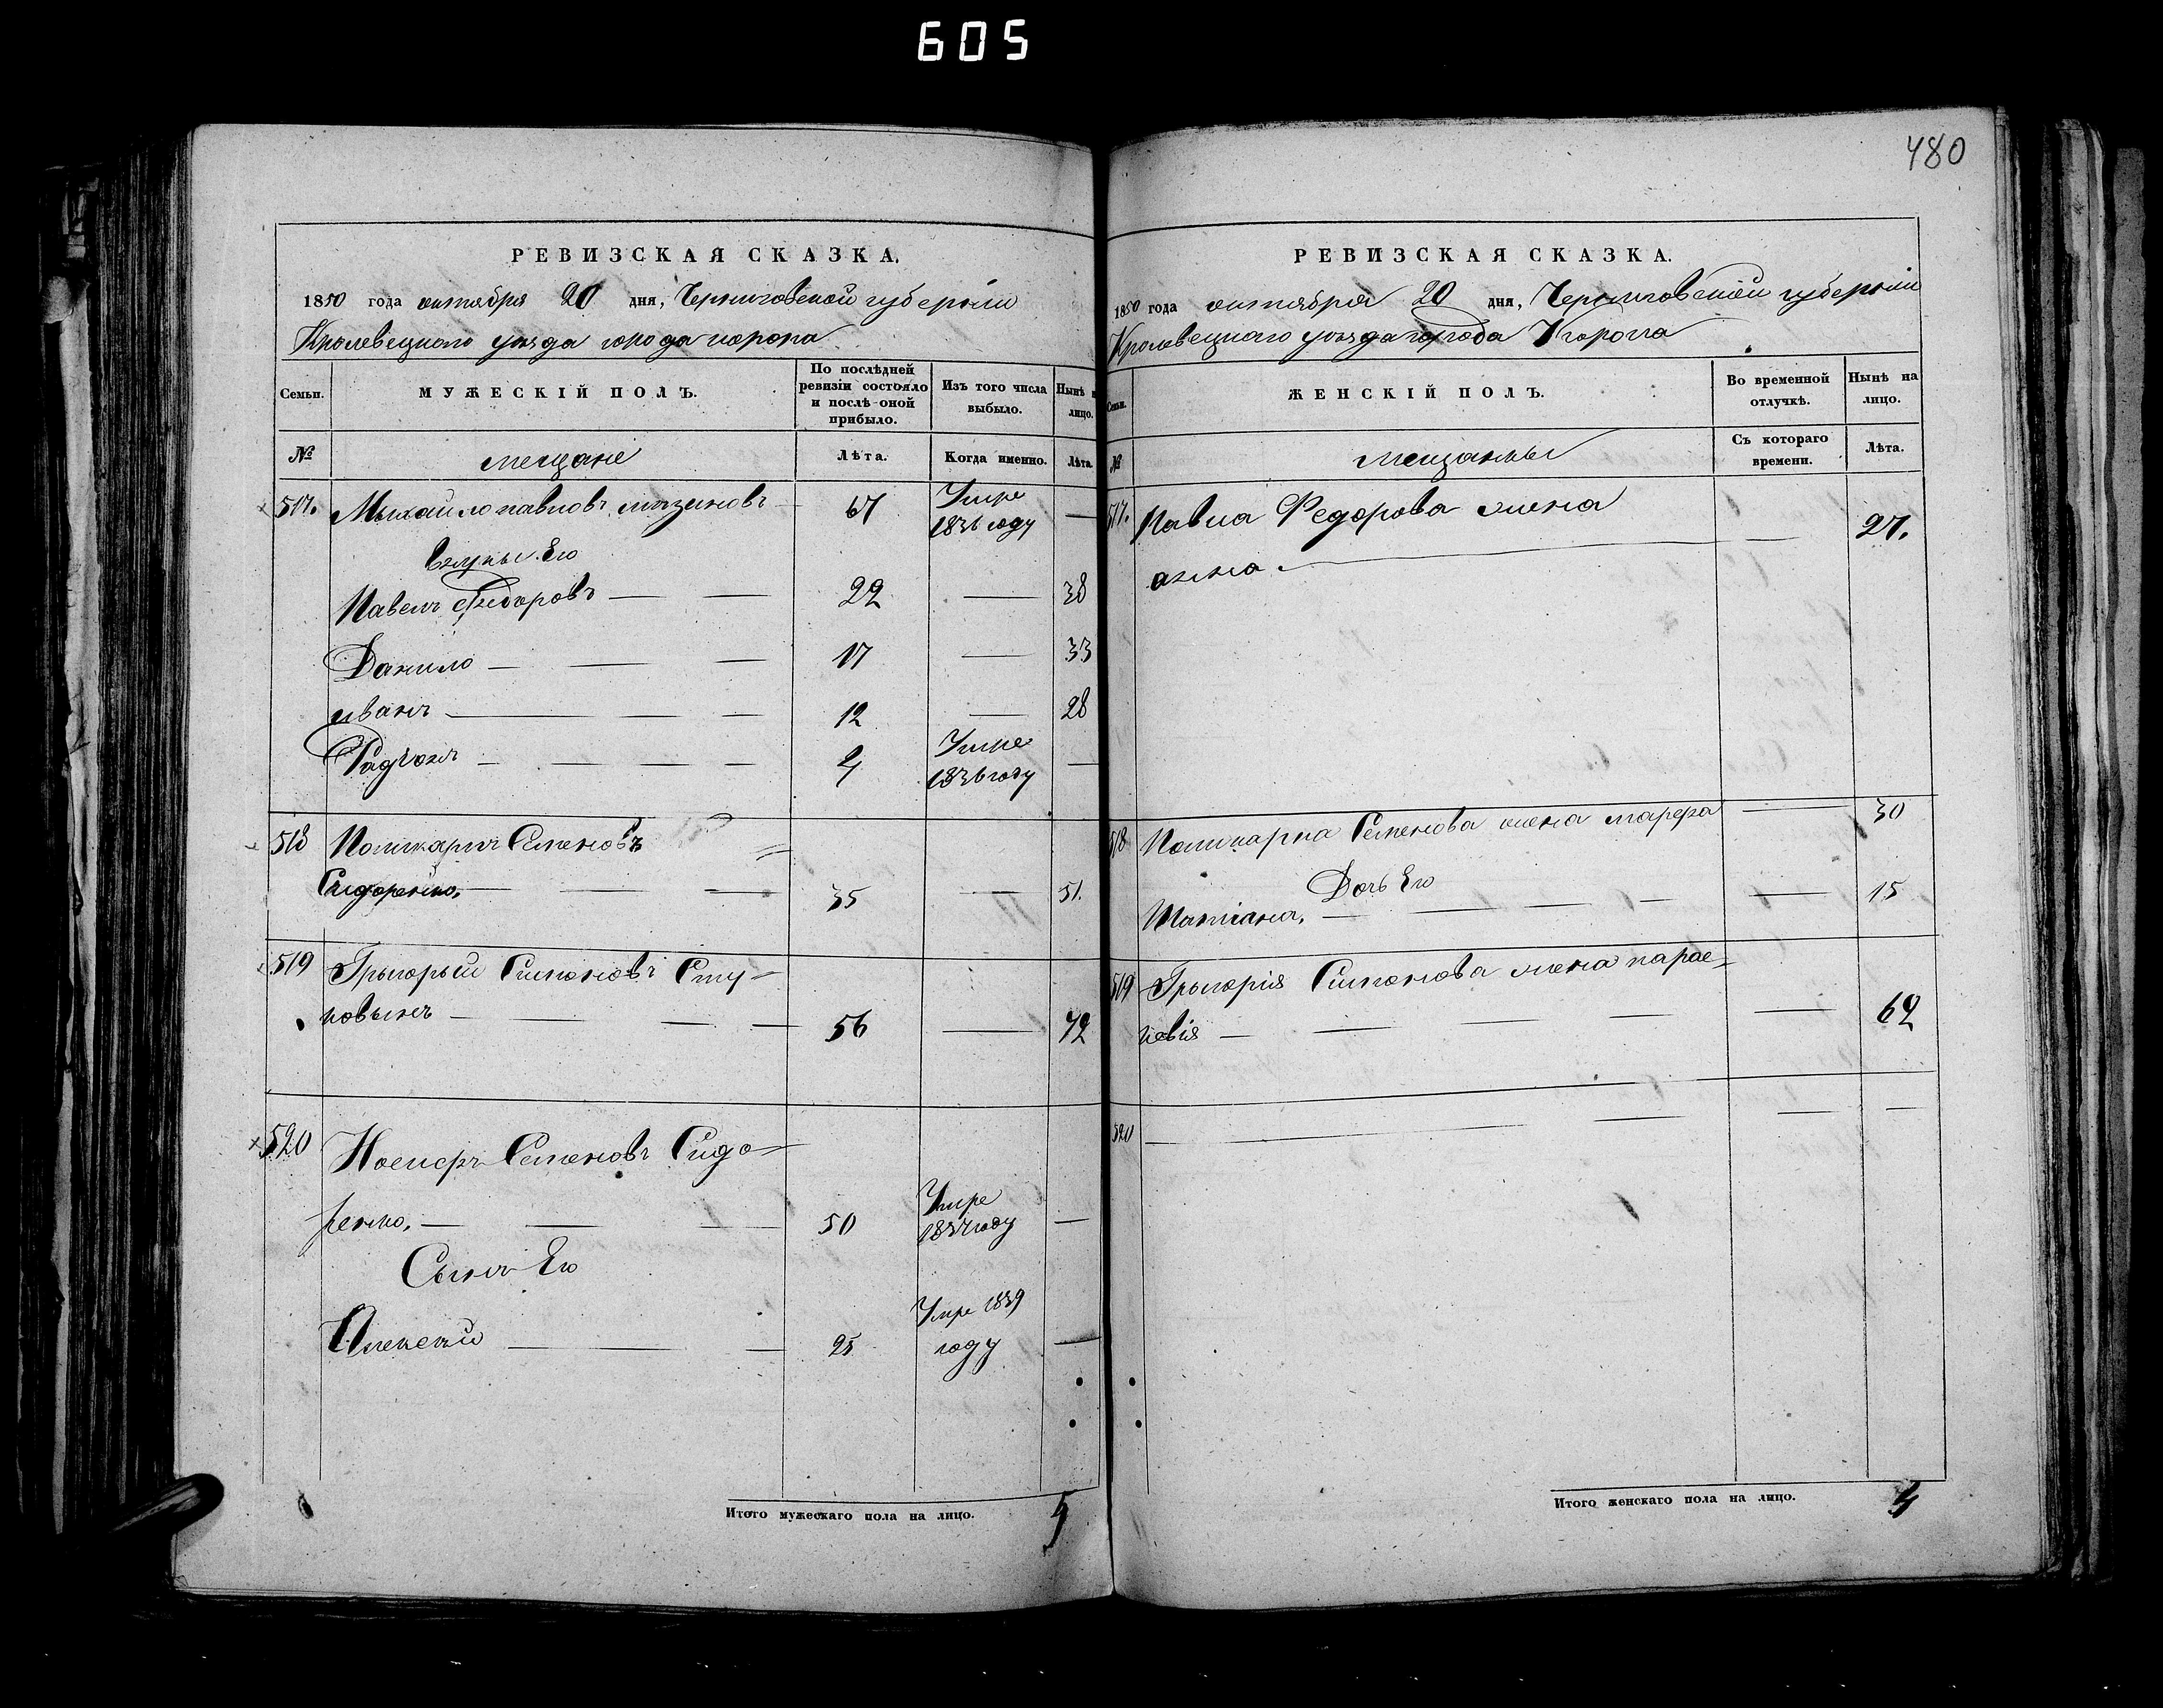 605
480
РЕВИЗСКАЯ СКАЗКА.
1850 года октября 20 дня, Черниговской губерніи
Кролевецкаго уезда города коропа
Семьи. МУЖЕСКІЙ ПОЛЪ. По послѣдней ревизіи состояло и послѣ оной прибыло. Изъ того числа выбыло. Нынѣ н лицо.
№ мещане Лѣта. Когда именно. Лѣта.
517. Михайло павловъ 67 Умре 1836 году —
Внуки Его
Павелъ Федоровъ — — 22 — 38
Данило — — — 17 — 33
иванъ — — — 12 — 28
Родіонъ — — — — 4 Умре 1836 году —
518 Поликарпъ Семеновъ
Сидоренко, — — — 35 — 51.
519 Григорый Симоновъ Сту-
ковынъ — — — — 56 — 72
520 Семеновъ Сидо-
ренко, — — — 50 Умре году —
Сынъ Его
Алексей — — 25 Умре 1839 году —
Итого мужескаго пола на лицо. 5
РЕВИЗСКАЯ СКАЗКА.
1850 года октября 20 дня, Черниговской губерніи
Кролевецкаго уезда города Коропа
Семьи. ЖЕНСКІЙ ПОЛЪ. Во временной отлучкѣ. Нынѣ на лицо.
№ мещанки Съ котораго времени. Лѣта.
517. Павла Федорова жена
анна. — — 27.
518 Поликарпа Семенова жена марфа — 30
Дочь Его
Татіана, — — — — — 15
519 Григорія Симонова жена парас-
кевія — — — — — 62
520 — — — —
Итого женскаго пола на лицо. 4